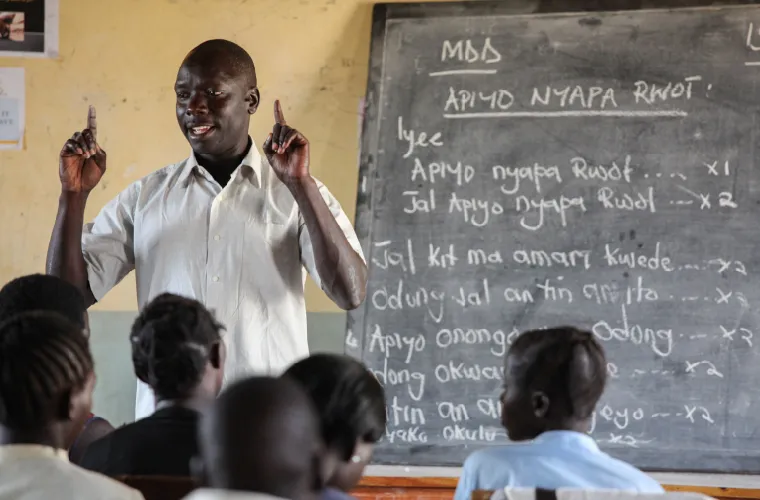 MDD
APIYO NYAPA RWOT.
Iyee
Apiyo nyapa Rwot .... x1
Jal Apiyo nyapa Rwot --- x2
Jal kit ma amari kwede.... x2
Odung Jal an tin an ito .... x2
Apiyo onong Odong --- x2
dong okwa --- x2
tin an an yeyo --- x2
waka okulu x2